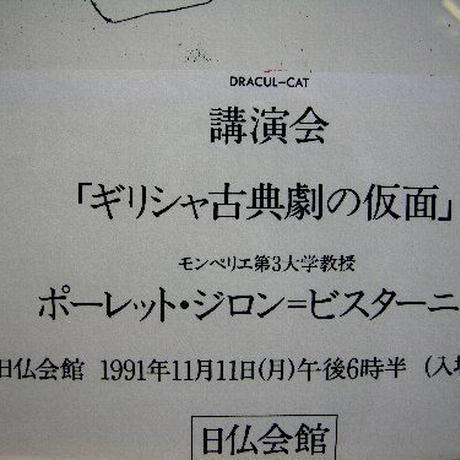 DRACUL-CAT
講演会
「ギリシャ古典劇の仮面」
モンペリエ第3大学教授
ポーレット・ジロン=ビスターニ
日仏会館 1991年11月11日(月)午後6時半 (入場
日仏会館